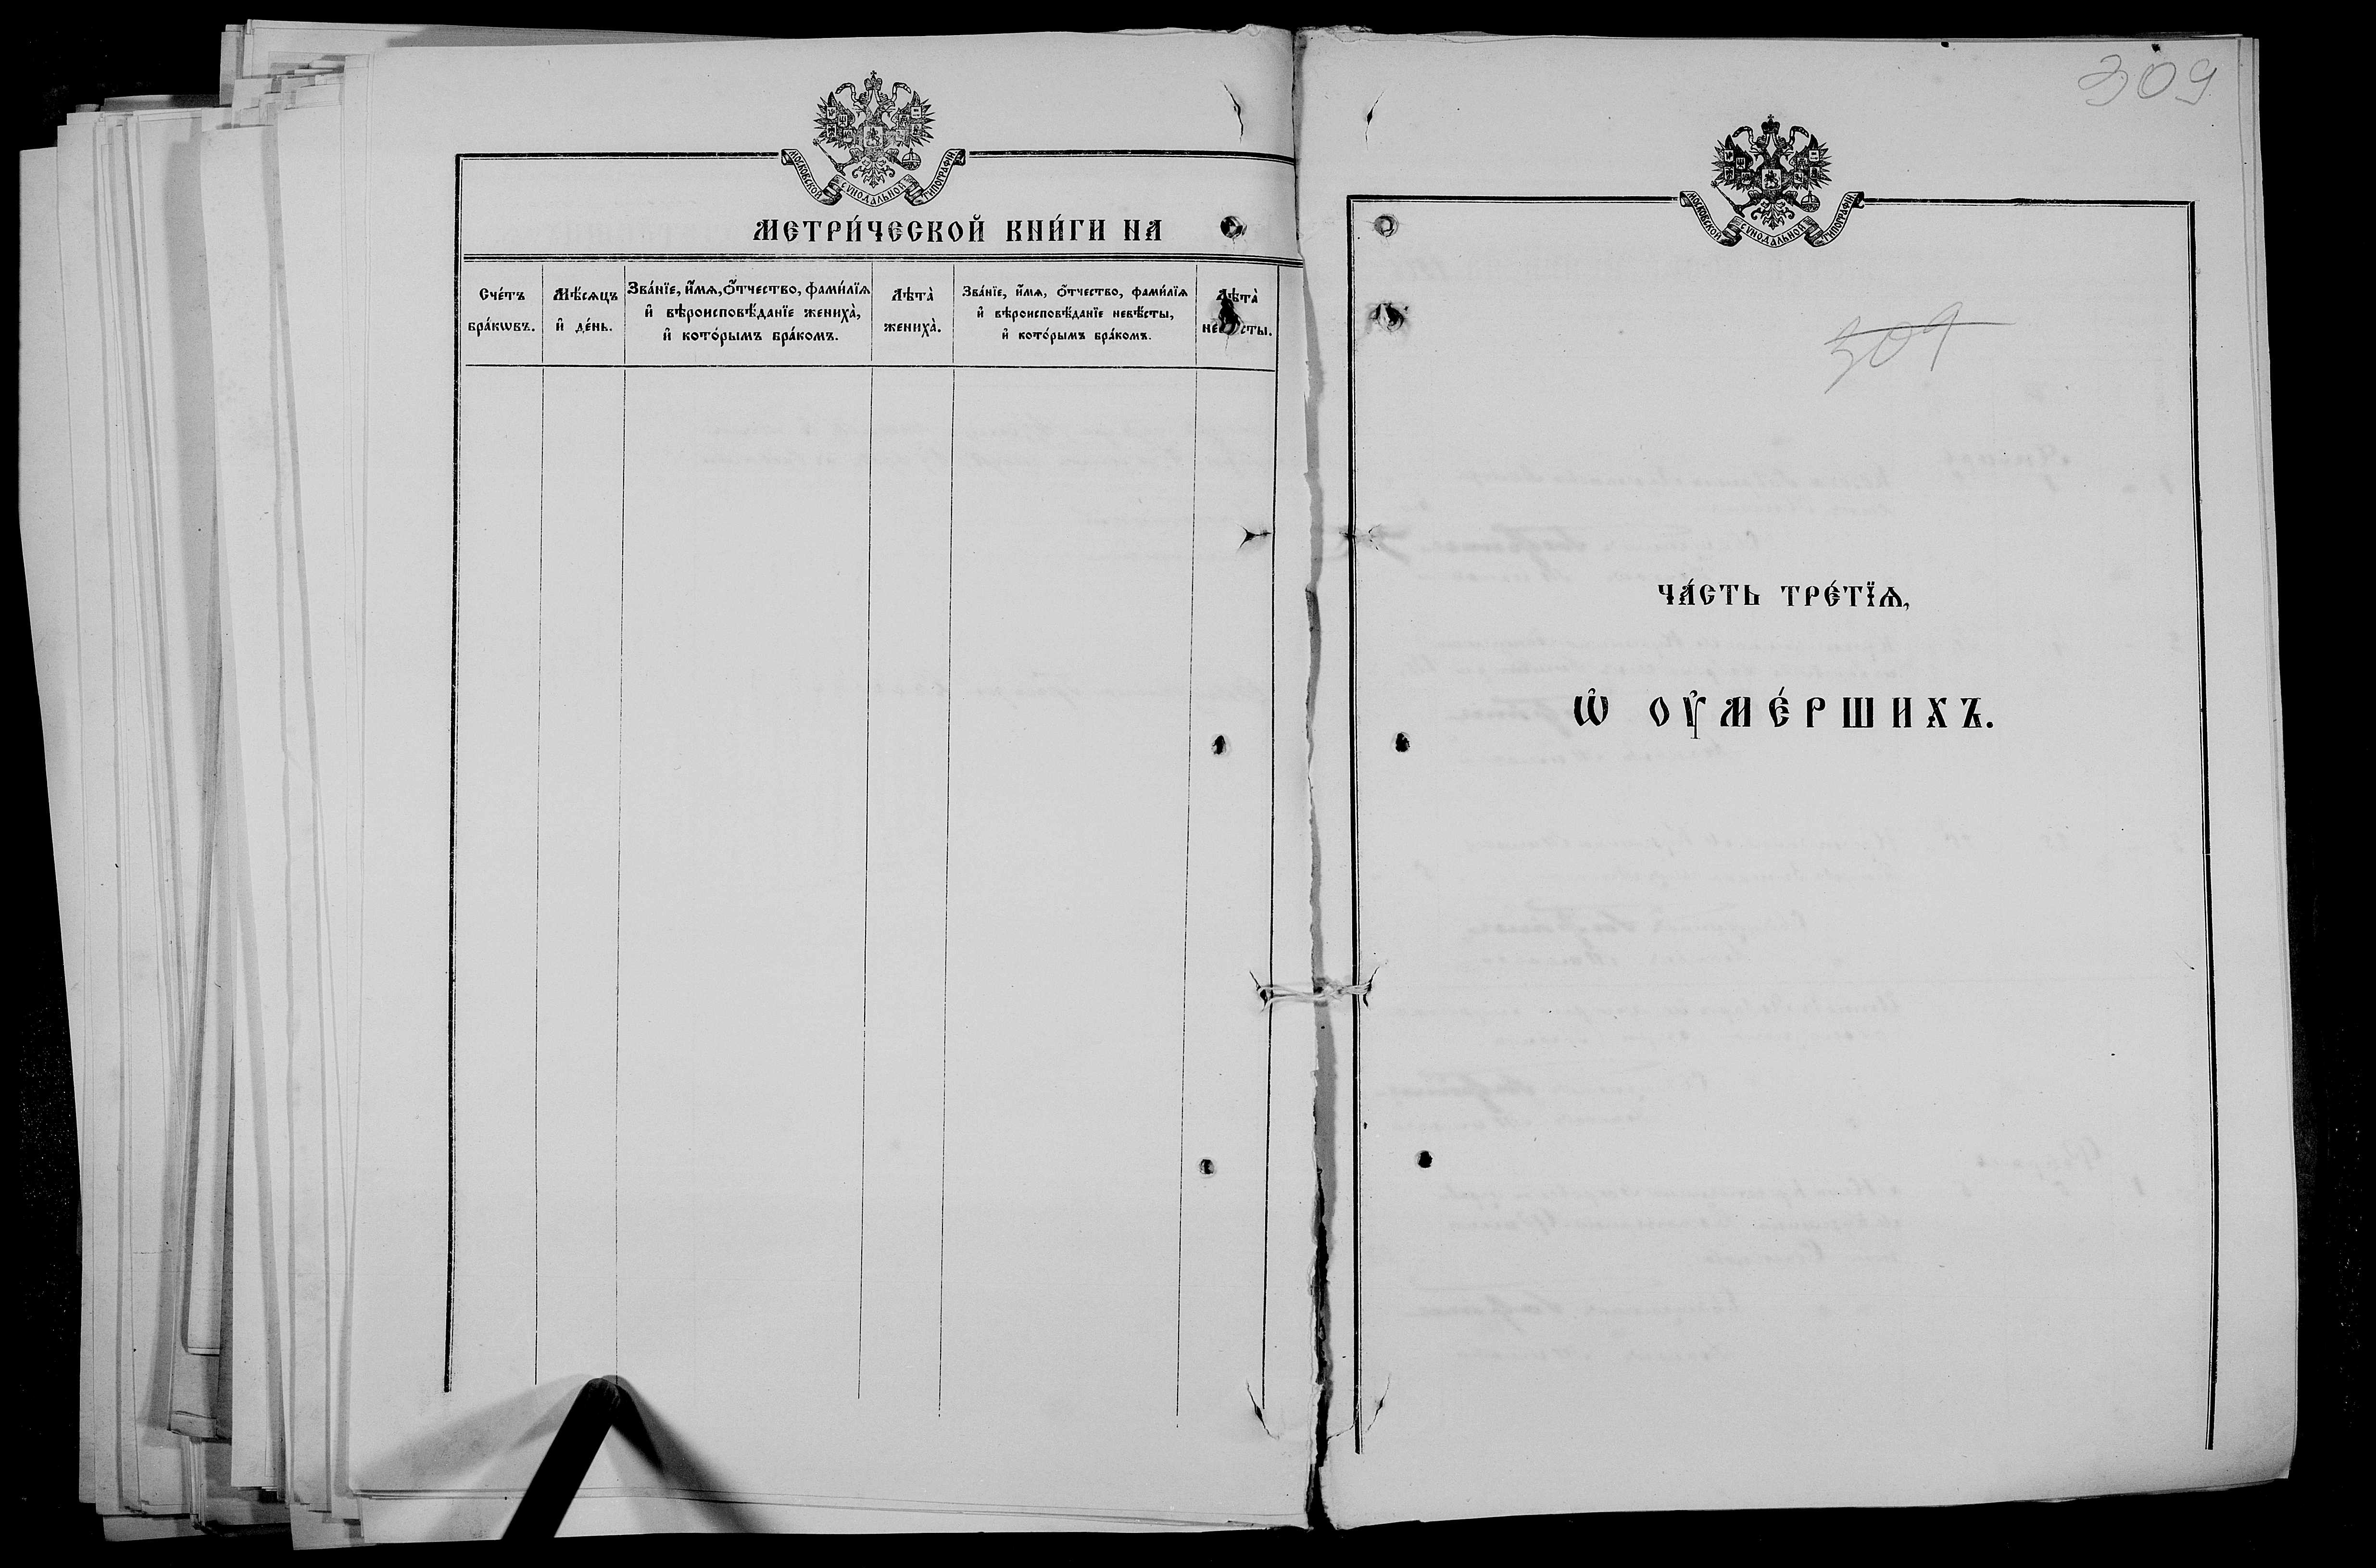 МОСКОВСКОЙ СѴНОДАЛЬНОЙ ТИПОГРАФІИ.
МЕТРИ́ЧЕСКОЙ КНИ́ГИ НА
Сче́тъ бра́кѡвъ.
Мѣ́сѧцъ и҆ де́нь.
Зва́нїе, и҆́мѧ, ѻ҆́тчество, фами́лїѧ
и҆ вѣроисповѣ́данїе жениха̀,
и҆ кото́рымъ бра́комъ.
Лѣта̀ жениха̀.
Зва́нїе, и҆́мѧ, ѻ҆́тчество, фами́лїѧ
и҆ вѣроисповѣ́данїе невѣ́сты,
и҆ кото́рымъ бра́комъ.
Лѣта̀ невѣ́сты.
309
МОСКОВСКОЙ СѴНОДАЛЬНОЙ ТИПОГРАФІИ.
309
ЧА́СТЬ ТРЕ́ТЇѦ,
Ѡ҆ ОУ҆МЕ́РШИХЪ.